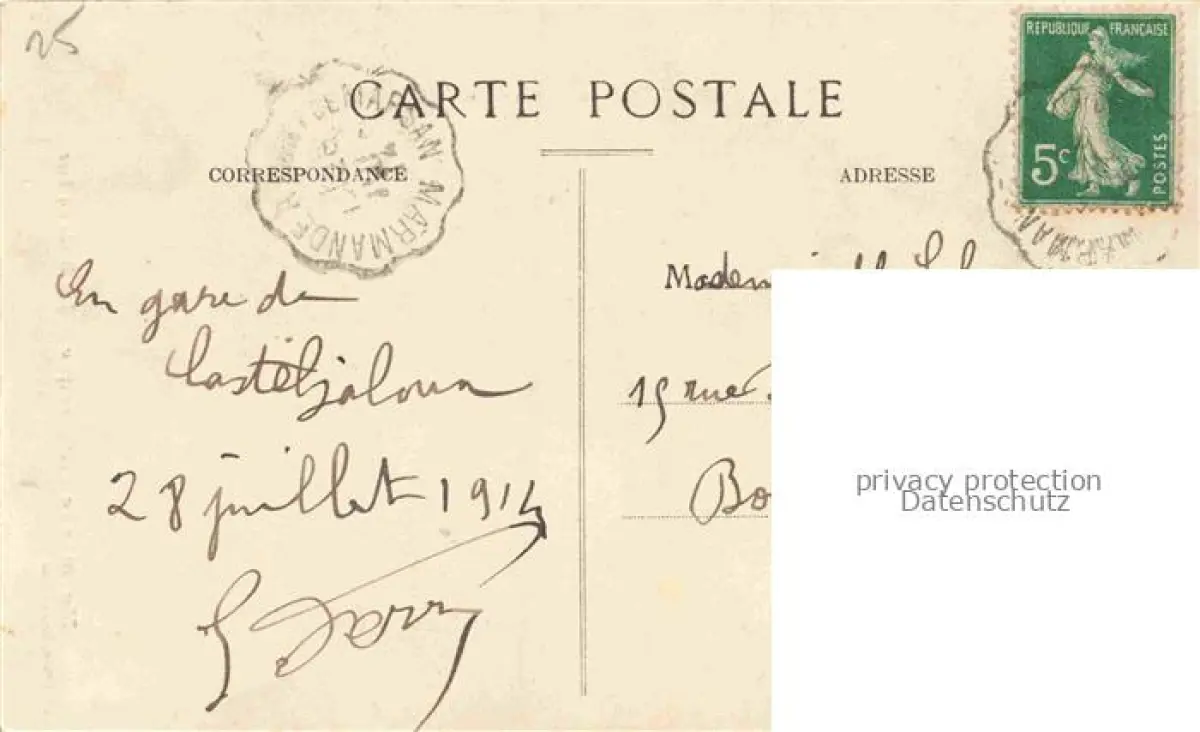 25
CARTE POSTALE
CORRESPONDANCE
ADRESSE
RÉPUBLIQUE FRANÇAISE
5c
POSTES
MARSAN MARMANDE
En gare de
Casteljaloux
28 juillet 1914
Mademoiselle
15 rue
Bo
privacy protection
Datenschutz